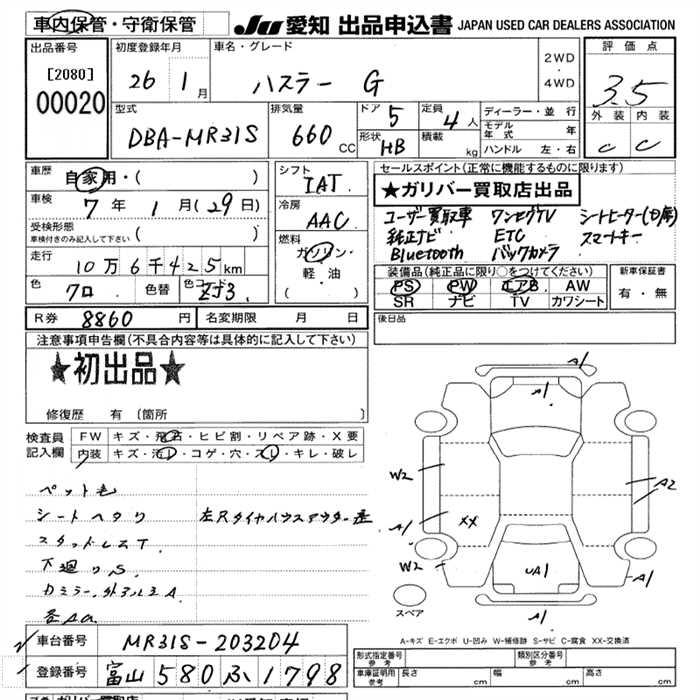 車内保管・守衛保管
JU 愛知 出品申込書 JAPAN USED CAR DEALERS ASSOCIATION
出品番号 [2080] 00020
初度登録年月 26 1月
車名・グレード ハスラー G
2WD ・ 4WD
評価点 3.5
外装 内装
C C
型式 DBA-MR31S
排気量 660 CC
ドア 5 定員 4人
形状 HB 積載 kg
ディーラー・並行
モデル年式 年
ハンドル 左・右
車歴 自家用・( )
車検 7年 1月(29日)
受検形態 ( )
車検付きのみ記入して下さい
走行 10万6千425km
色 クロ 色替 色コード ZJ3
シフト IAT
冷房 AAC
燃料 ガソリン・軽・油 ( )
セールスポイント(正常に機能するものに限ります)
★ガリバー買取店出品
ユーザー買取車 ワンセグTV シートヒーター(D席)
純正ナビ ETC スマートキー
Bluetooth バックカメラ
装備品(純正品に限り○をつけてください)
PS PW エアB AW
SR ナビ TV カワシート
新車保証書
有・無
R券 8860円 名変期限 月 日
後日品
注意事項申告欄(不具合内容等は具体的に記入して下さい)
★初出品★
修復歴 有 〔箇所 〕
検査員記入欄
FW キズ・飛石・ヒビ割・リペア跡・X要
内装 キズ・汚れ・コゲ・穴・スレ・キレ・破レ
ペット毛
シートヘタリ 左Rタイヤハウスアウター歪
スタッドレスT
下廻りS
カミラー、外アルミA
各Aa
A1
A1
W2
A2
A1
XX
W2
UA1
A1
A1
スペア
A-キズ E-エクボ U-凹み W-補修跡 S-サビ C-腐食 XX-交換済
車台番号 MR31S-203204
登録番号 富山 580 ふ 1798
形式指定番号 参考
類別区分番号 参考
車庫証明用参考 長さ cm 幅 cm 高さ cm